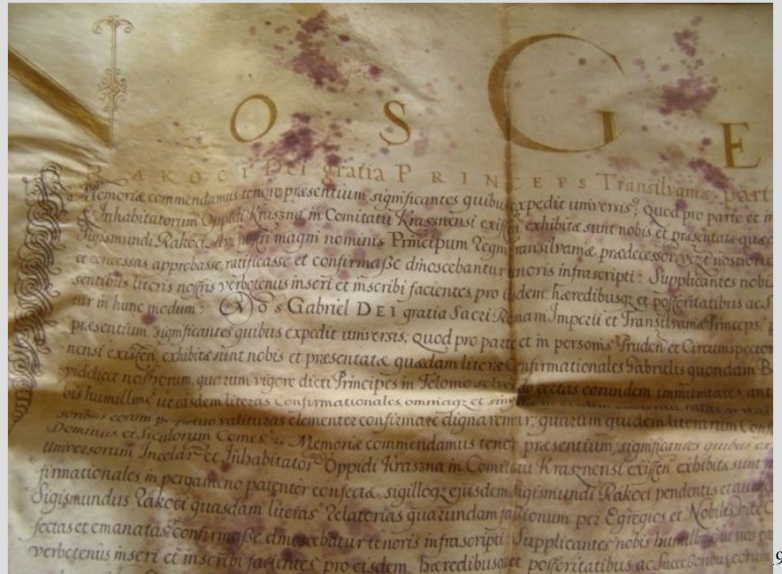 N O S G E
RAKOCI Dei gratia PRINCEPS Transilvaniæ part
Memoriæ commendamus tenore præsentium significantes quibus expedit universis, Quod pro parte et in
Inhabitatorum Oppidi Kraszna in Comitatu Krasznensi existen exhibitæ sunt nobis et præsentatæ quæd
Sigismundi Rakoci magni nominis Principum Regni Transilvaniæ, prædecessorum
et concessas approbasse, ratificasse et confirmaße dinoscebantur tenoris infrascripti: Supplicantes nobis
sentibus literis nostris verbotenus inseri et inscribi facientes, pro iisdem, hæredibusqz et posteritatibus ac S
tur in hunc modum: Nos Gabriel DEI gratia Sacri Romani Imperii et Transilvaniæ Princeps, p
præsentium, significantes quibus expedit universis, quod pro parte et in personis Pruden et Circumspector
nensi existen, exhibitæ sunt nobis et præsentatæ quædam literæ Confirmationales Gabrielis quondam B
videlicet nostrorum, quarum vigore dicti Principes in eorundem immunitates ant
bis humillime ut easdem literas Confirmationales, omniaqz et sing
perpetuo valituras clementer confirmare dignaremur, quarum quidem literarum Con
Dominus et Siculorum Comes Memoriæ commendamus tenore præsentium, significantes quibus ex
Universorum Incolar et Inhabitator Oppidi Kraszna in Comitatu Krasznensi existen exhibitæ sunt
firmationales in pergameno patenter confectæ, sigilloqz ejusdem Sigismundi Rakoci pendenti et au
Sigismundus Rakoci quasdam literas Relatorias quarundam per Egregios et Nobiles
fectas et emanatas confirmaße dinoscebatur tenoris infrascripti: Supplicantes nobis humillime
verbotenus inseri et inscribi facientes pro eisdem, hæredibusqz et posteritatibus ac Successoribus eorum